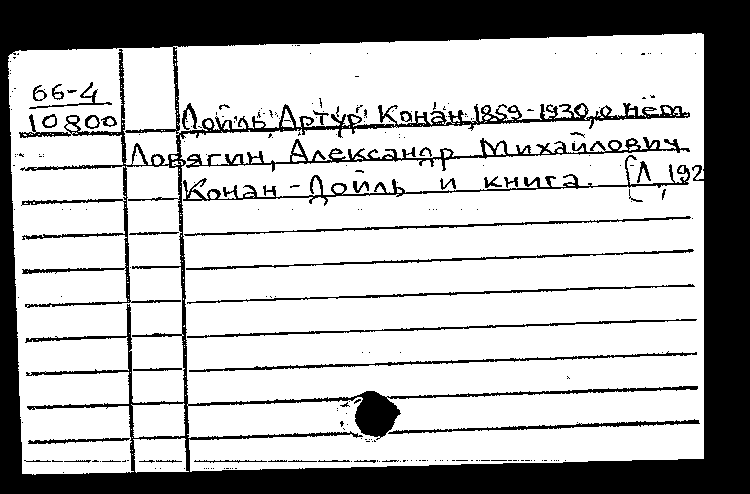 66-4
10800
Дойль, Артур Конан, 1859-1930, о нём
Ловягин, Александр Михайлович
Конан-Дойль и книга. [Л, 192